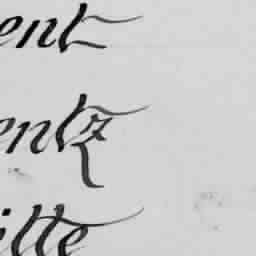 ent
entz
itte